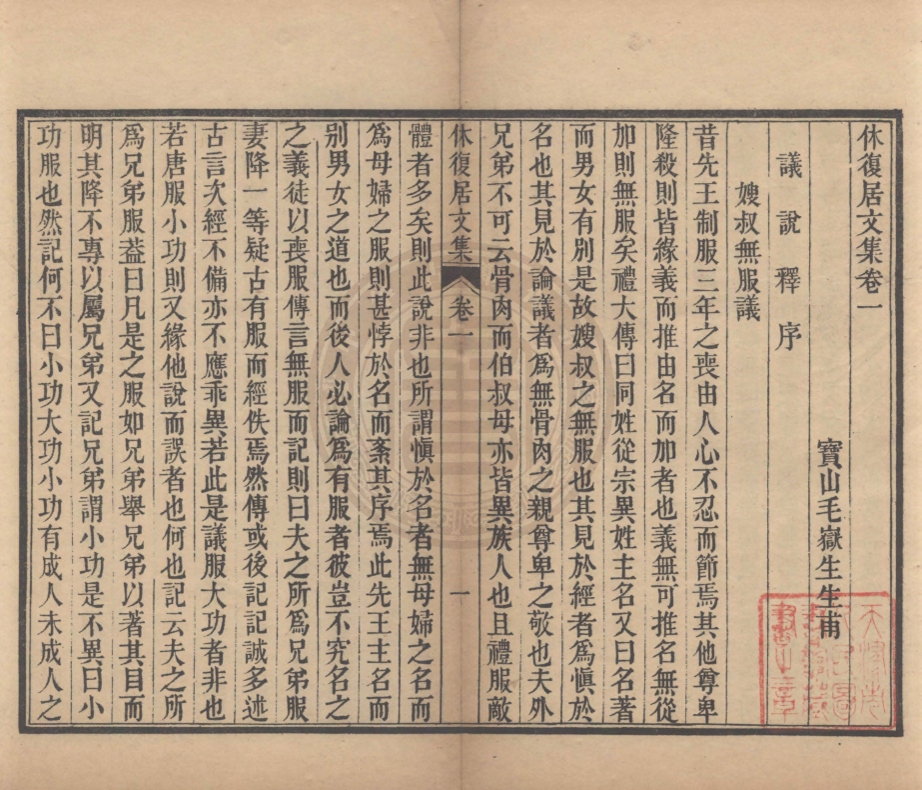 休復居文集卷一
寶山毛嶽生生甫
議說釋序
嫂叔無服議
昔先王制服三年之喪由人心不忍而節焉其他尊卑
隆殺則皆緣義而推由名而加者也義無可推名無從
加則無服矣禮大傳曰同姓從宗異姓主名又曰名著
而男女有別是故嫂叔之無服也其見於經者爲愼於
名也其見於論議者爲無骨肉之親尊卑之敬也夫外
兄弟不可云骨肉而伯叔母亦皆異族人也且禮服敵
休復居文集
卷一
一
體者多矣則此說非也所謂愼於名者無母婦之名而
爲母婦之服則甚悖於名而紊其序焉此先王主名而
別男女之道也而後人必論爲有服者彼豈不究名之
之義徒以喪服傳言無服而記則曰夫之所爲兄弟服
妻降一等疑古有服而經佚焉然傳或後記記誠多述
古言次經不備亦不應乖異若此是議服大功者非也
若唐服小功則又緣他說而誤者也何也記云夫之所
爲兄弟服葢曰凡是之服如兄弟舉兄弟以著其目而
明其降不專以屬兄弟又記兄弟謂小功是不異曰小
功服也然記何不曰小功大功小功有成人未成人之